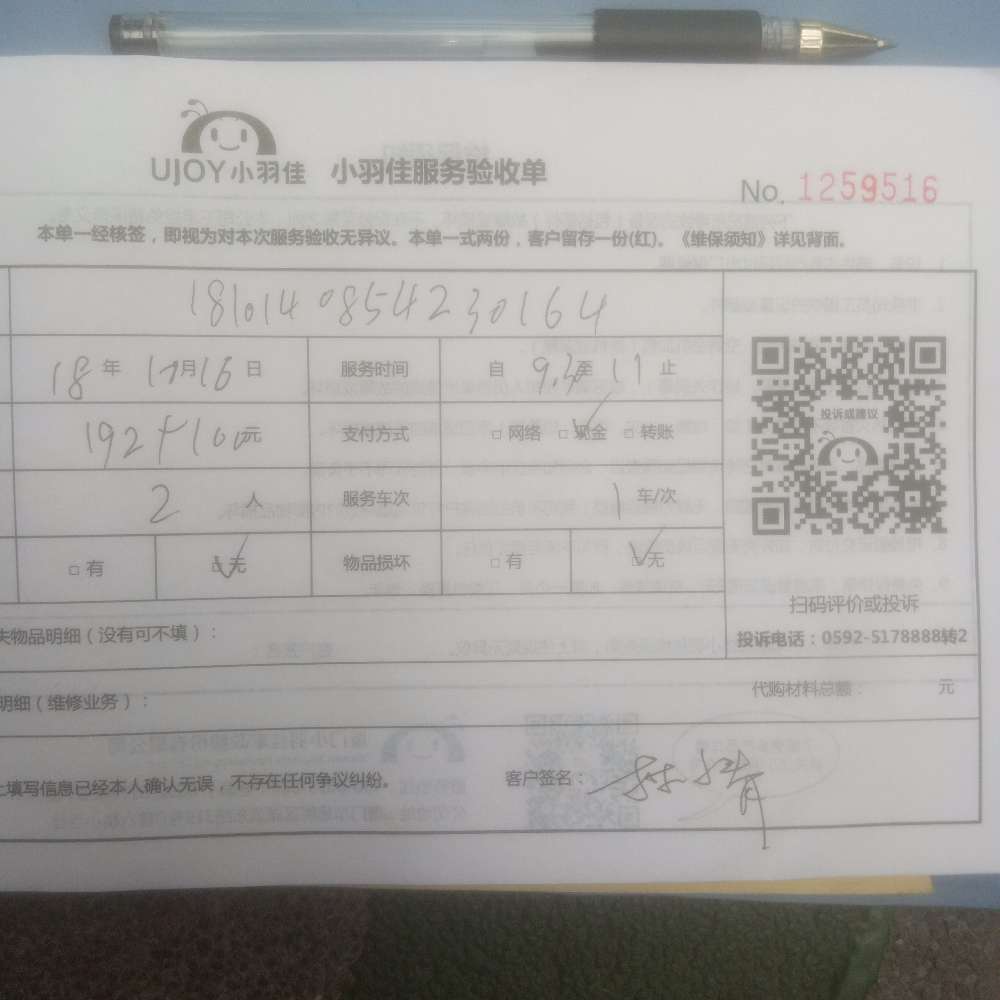 UJOY小羽佳 小羽佳服务验收单
No. 1259516
本单一经核签，即视为对本次服务验收无异议。本单一式两份，客户留存一份(红)。《维保须知》详见背面。
1810140854230164
18年 10月16日 服务时间 自 9.30至 11 止
192+100元 支付方式 □网络 □现金 □转账
2 人 服务车次 1 车/次
□有 □无 物品损坏 □有 □无
投诉或建议
扫码评价或投诉
失物品明细（没有可不填）：
投诉电话：0592-5178888转2
明细（维修业务）： 代购材料总额： 元
上填写信息已经本人确认无误，不存在任何争议纠纷。 客户签名：